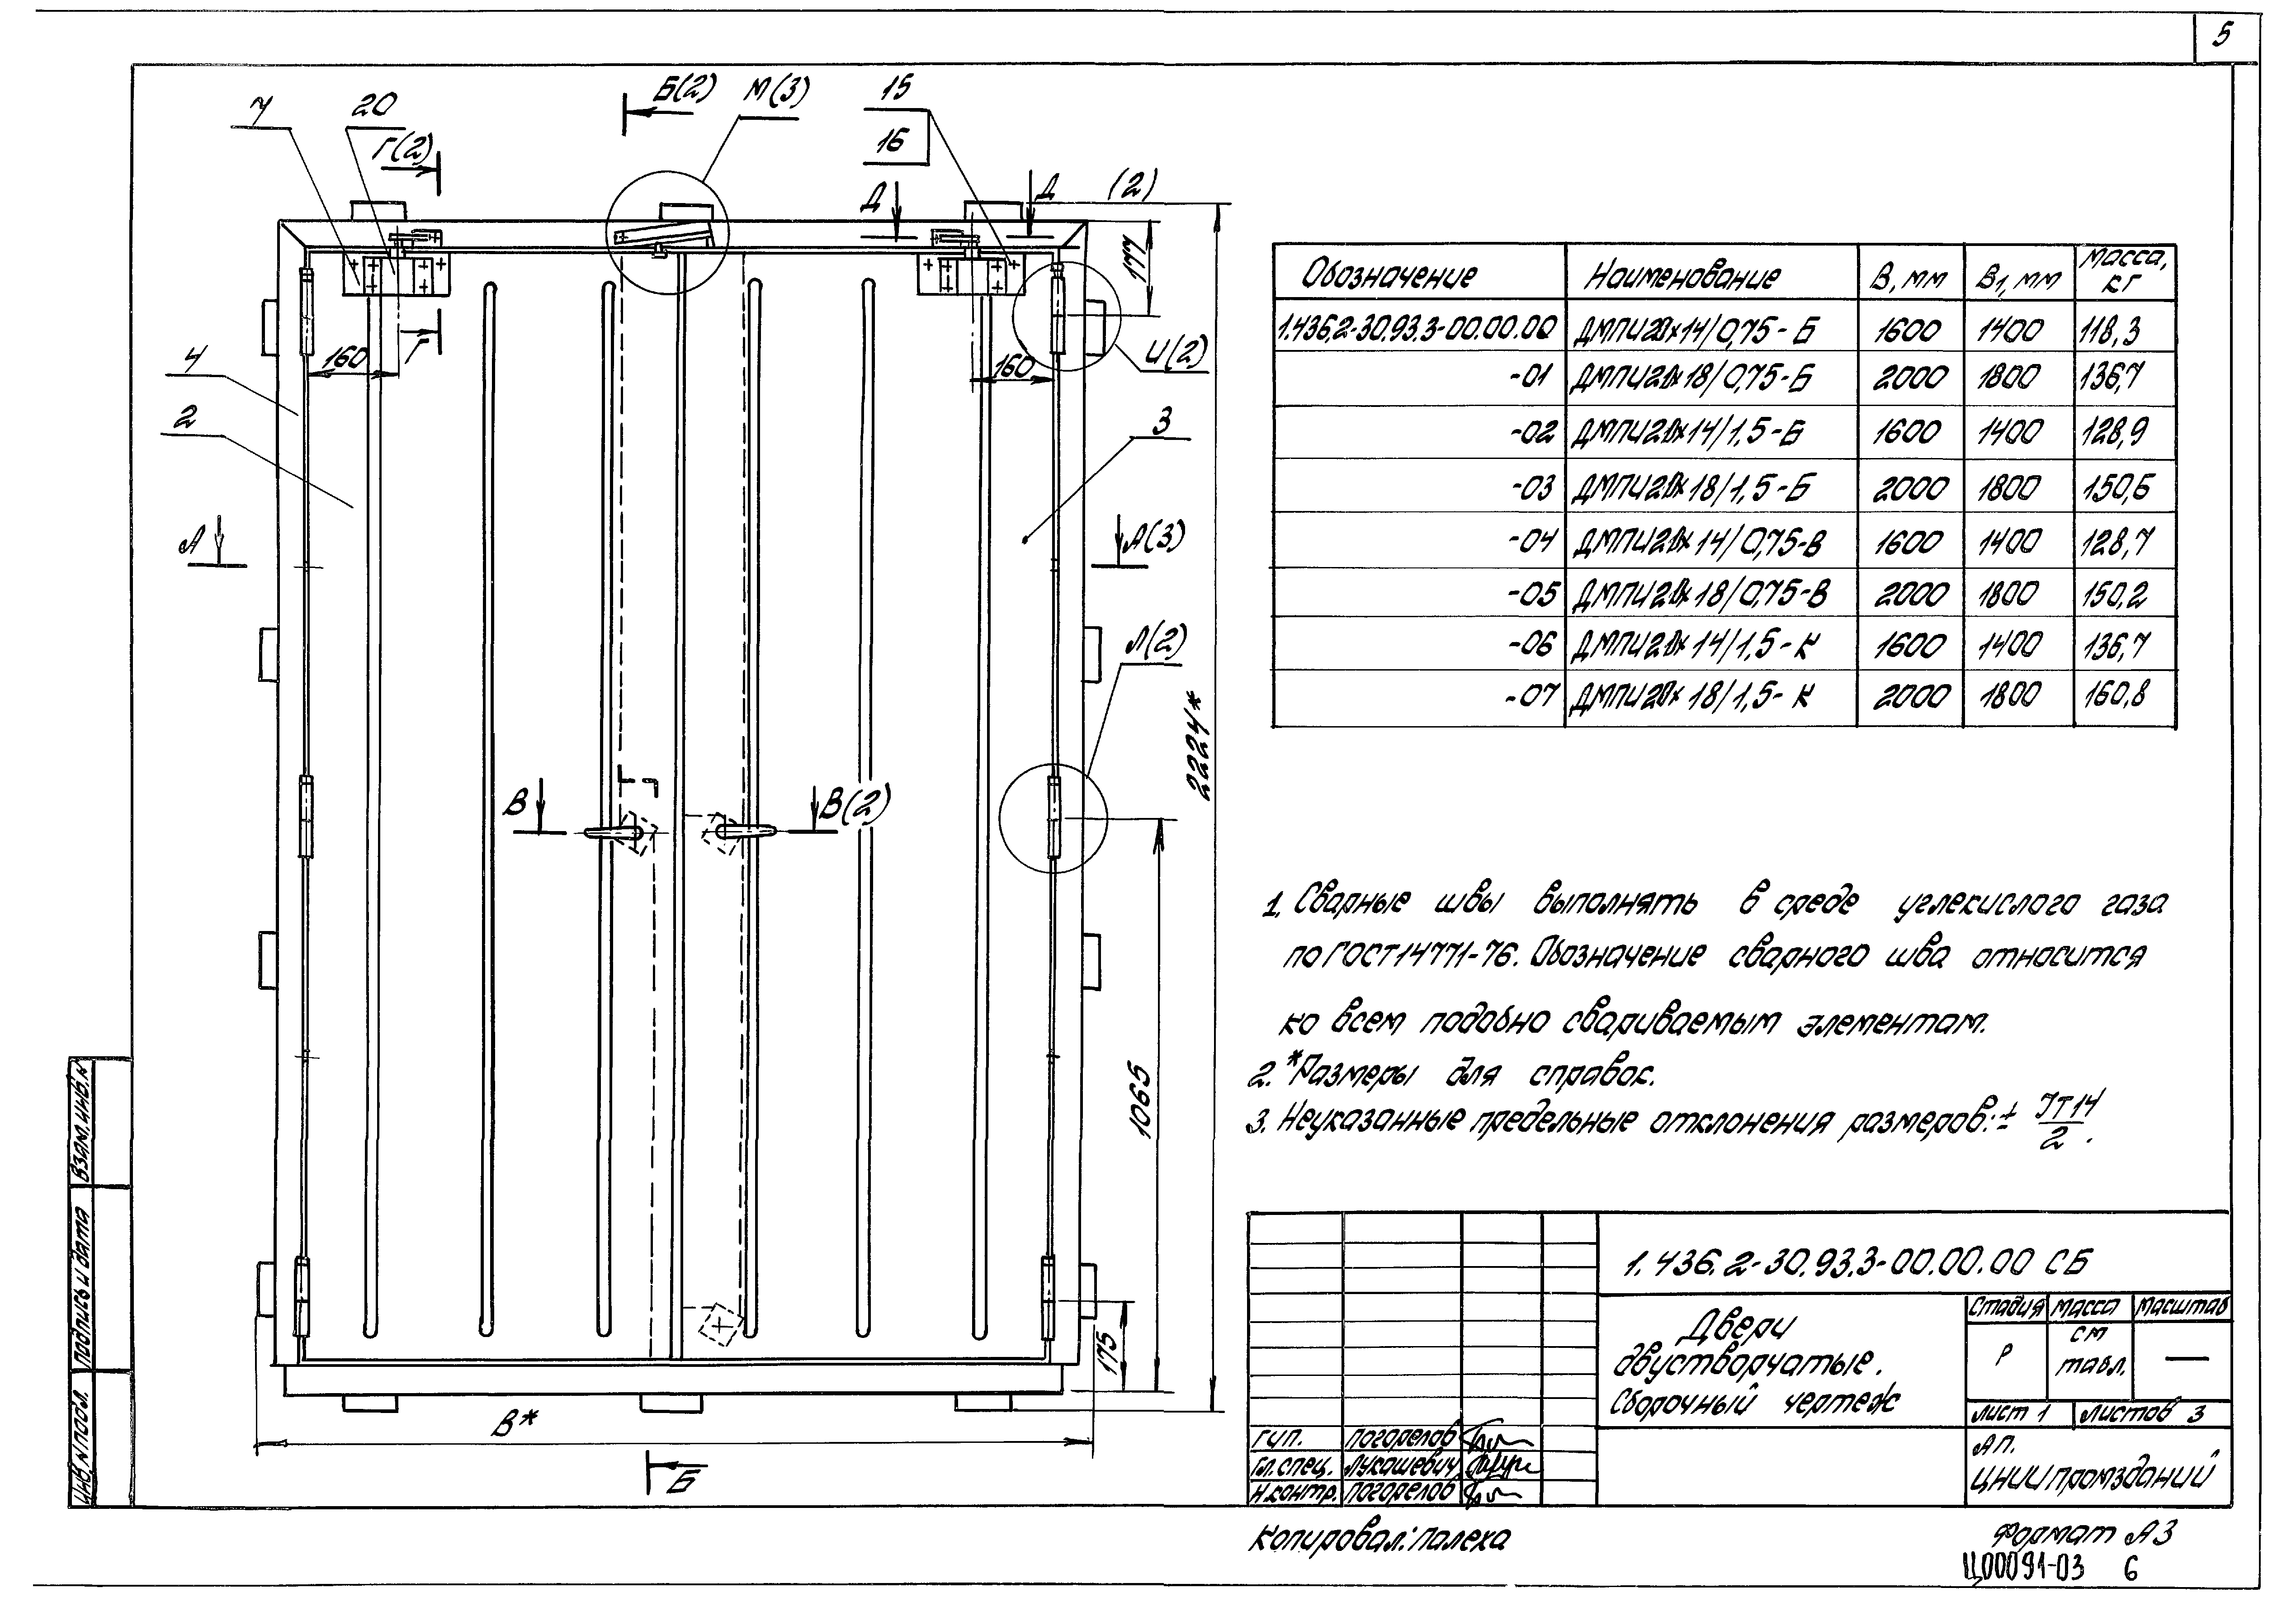 5
7
20
Г(2)
Б(2)
М(3)
15
16
Д
Д
(2)
177
Г
160
160
И(2)
4
2
3
А
А(3)
Л(2)
2224*
В
В(2)
1065
175
В*
Б
Обозначение Наименование В, мм В1, мм Масса, кг
1.436.2-30.93.3-00.00.00 ДМПИ21х14/0,75-Б 1600 1400 118,3
-01 ДМПИ21х18/0,75-Б 2000 1800 136,7
-02 ДМПИ21х14/1,5-Б 1600 1400 128,9
-03 ДМПИ21х18/1,5-Б 2000 1800 150,6
-04 ДМПИ21х14/0,75-В 1600 1400 128,7
-05 ДМПИ21х18/0,75-В 2000 1800 150,2
-06 ДМПИ21х14/1,5-К 1600 1400 136,7
-07 ДМПИ21х18/1,5-К 2000 1800 160,8
1. Сварные швы выполнять в среде углекислого газа
по ГОСТ 14771-76. Обозначение сварного шва относится
ко всем подобно свариваемым элементам.
2. *Размеры для справок.
3. Неуказанные предельные отклонения размеров: ± IT14/2.
Взам. инв. N
Подпись и дата
Инв. N подл.
1.436.2-30.93.3-00.00.00 СБ
Двери
двустворчатые.
Сборочный чертеж
Стадия Масса Масштаб
Р см табл. —
Лист 1 Листов 3
АП.
ЦНИИпромзданий
ГИП. Погорелов
Гл. спец. Лукашевич
Н. контр. Погорелов
Копировал: Палеха
Формат А3
Ц00091-03 6